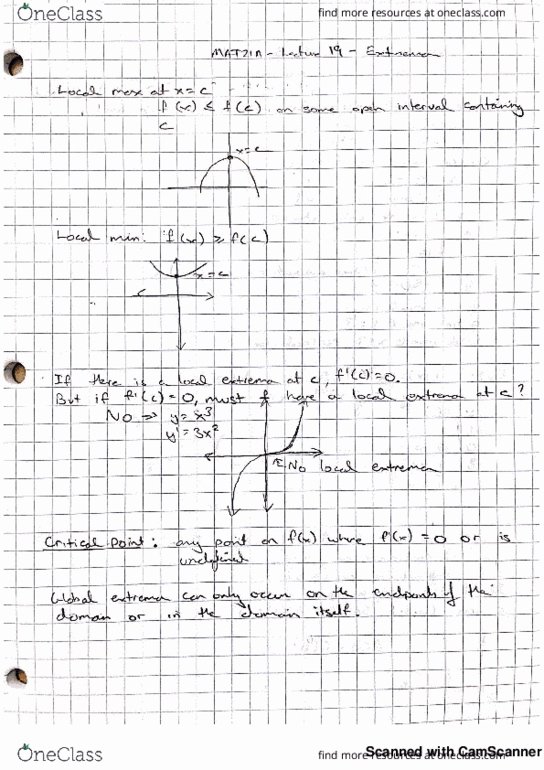 OneClass
find more resources at oneclass.com
MAT21A - Lecture 19 - Extrema
Local max at x=c
f(x) ≤ f(c) on some open interval containing
c
x=c
Local min: f(x) ≥ f(c)
x=c
If there is a local extrema at c, f'(c)=0.
But if f'(c)=0, must f have a local extrema at c?
No ⇒ y=x³
y'=3x²
No local extrema
Critical Point: any point on f(x) where f'(x)=0 or is
undefined
Global extrema can only occur on the endpoints of the
domain or in the domain itself.
OneClass
find more resources at oneclass.com
Scanned with CamScanner